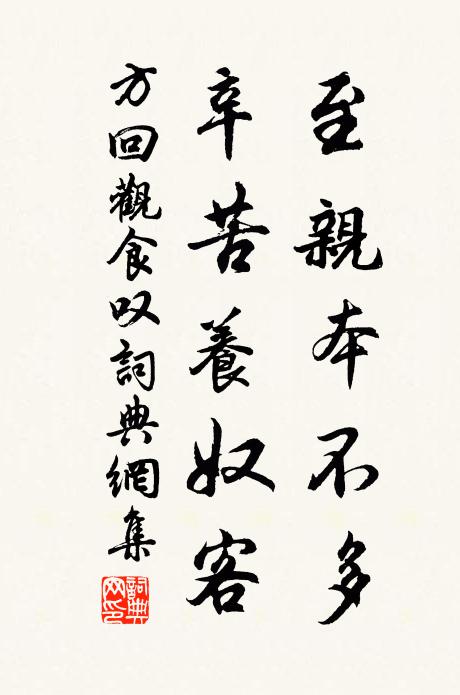 至親本不多
辛苦養奴客
方回觀食叹詞典網集
詞典
网印